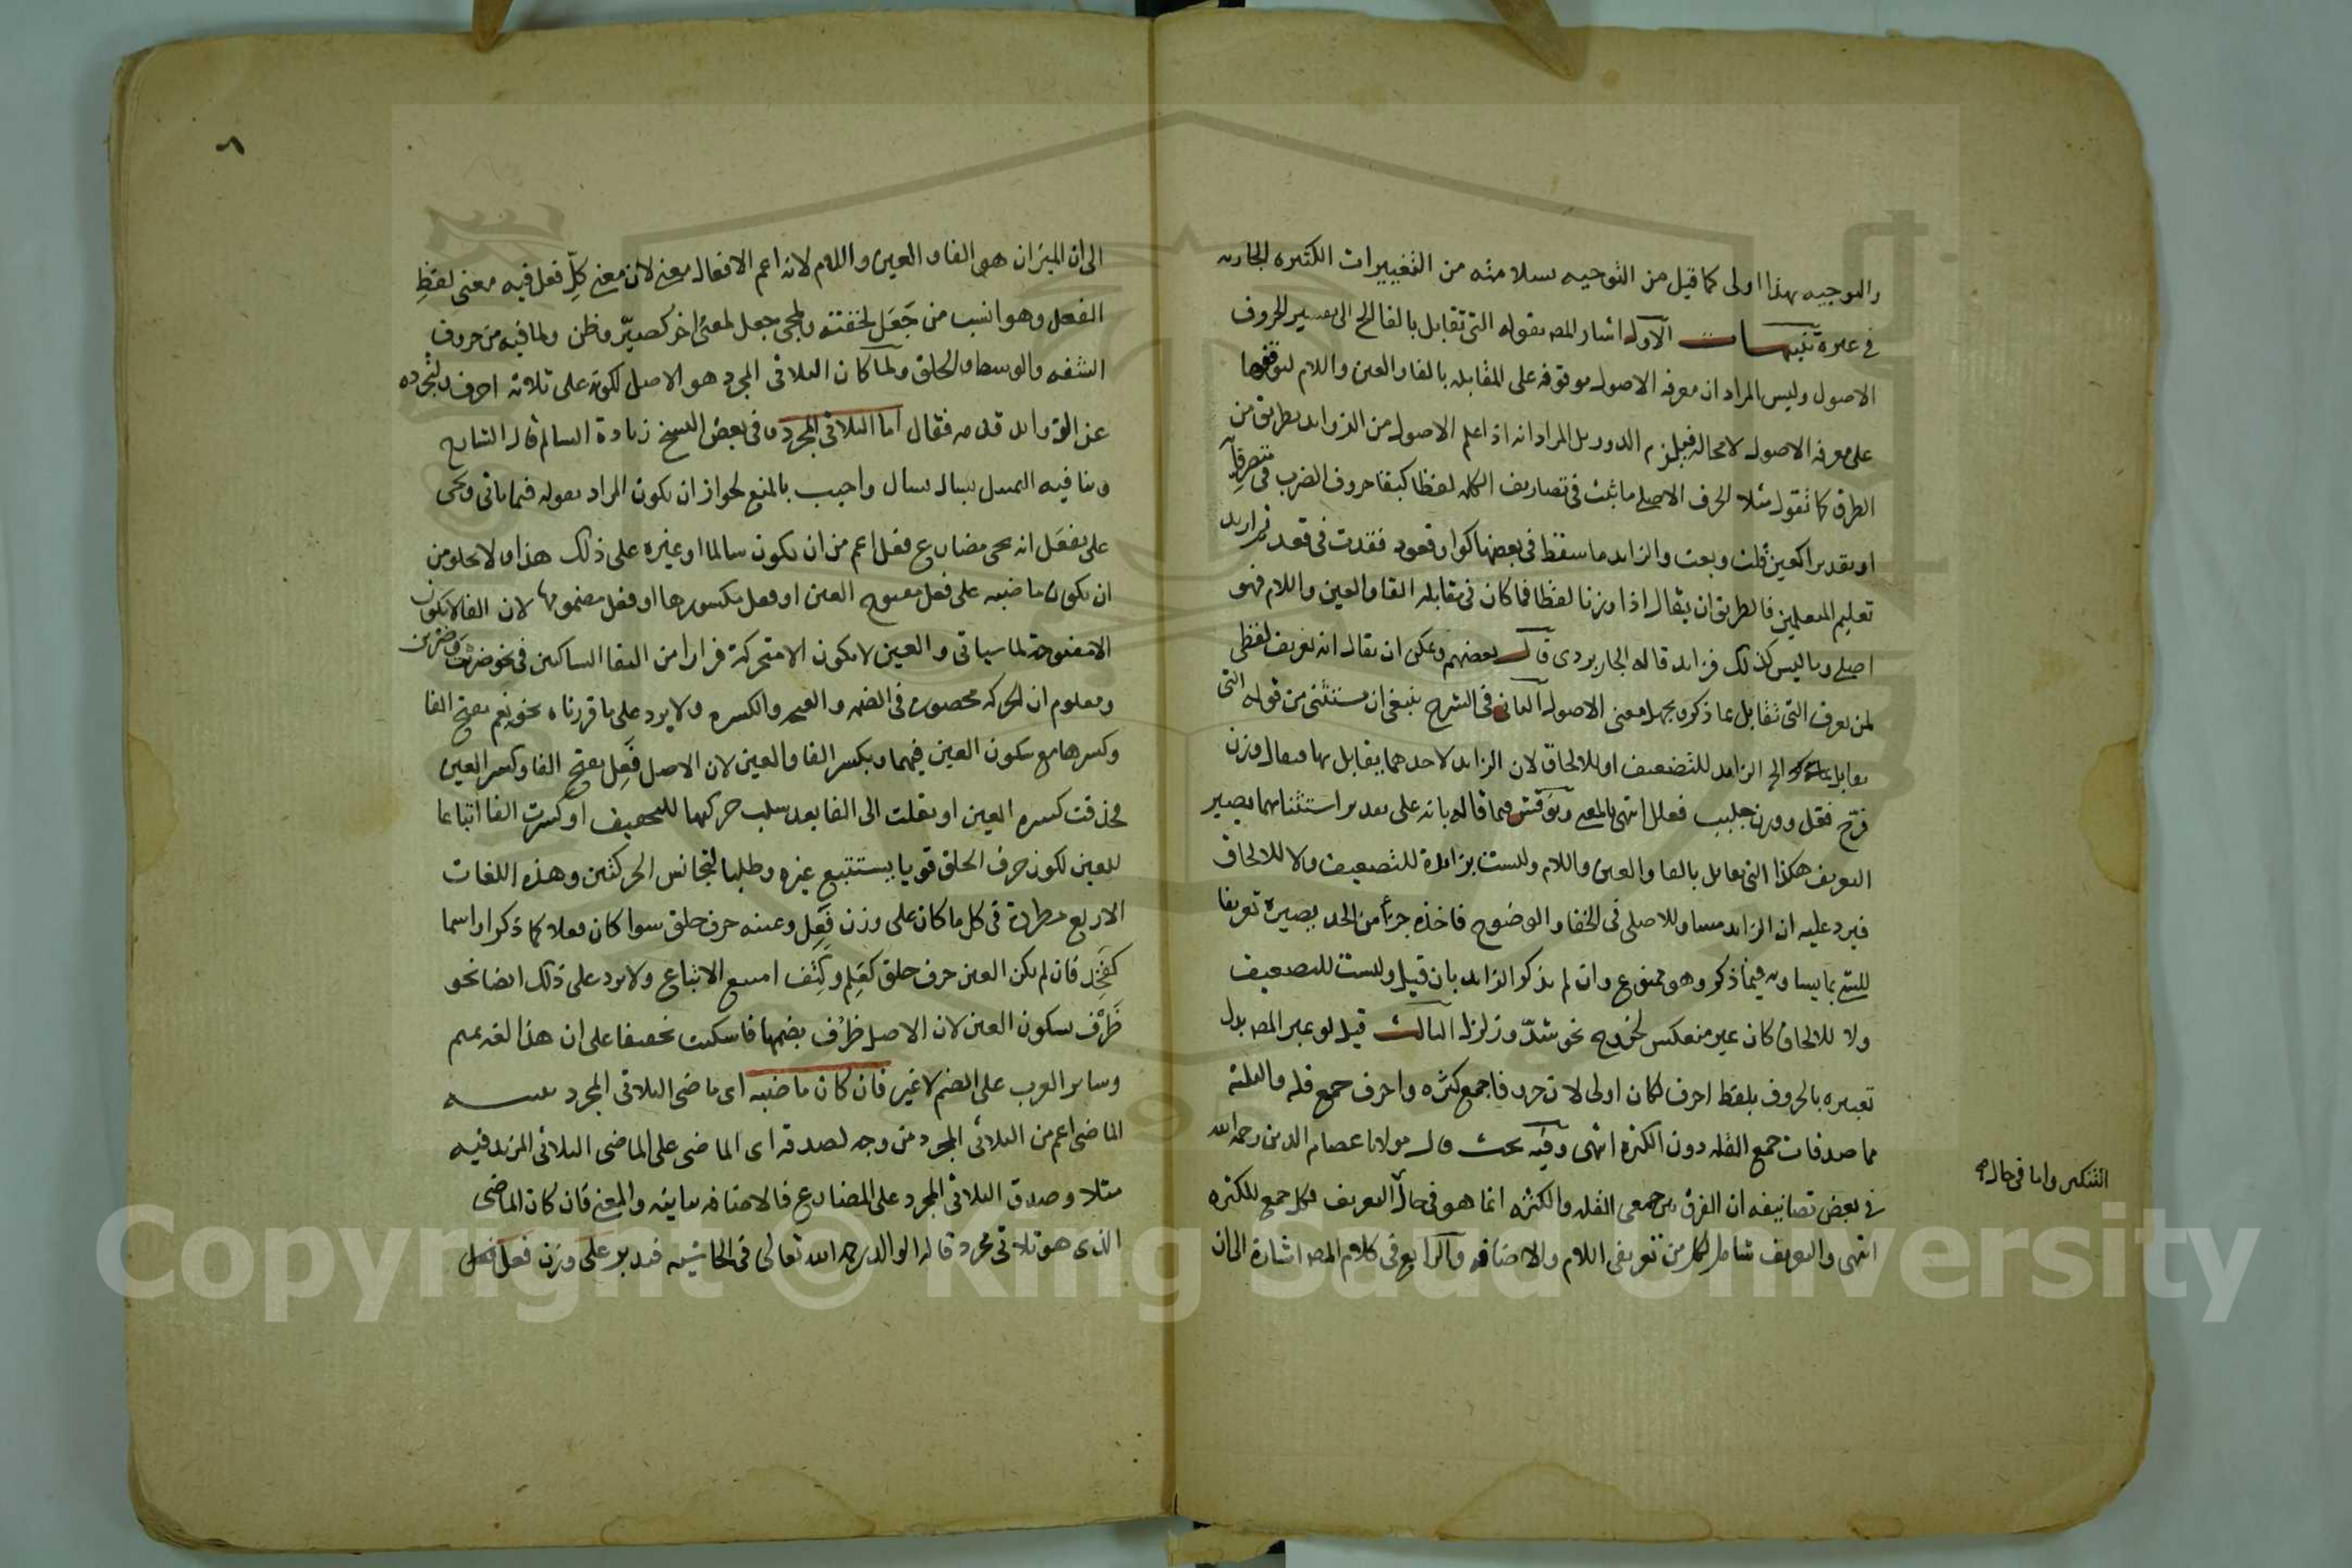 والتوجيه بهذا اولى كما قيل من التوجيه سلامته من التغييرات الكثيره الجاريه
في غيره تنبيهات الاول اشار المص بقوله التي تقابل بالفا الخ الى تفسير الحروف
الاصول وليس المراد ان معرفه الاصول موقوفه على المقابله بالفا والعين واللام لتوقفها
على معرفه الاصول لا محاله فيلزم الدور بل المراد انه اذا علم الاصول من الزوايد بطريق من
الطرق كما تقول مثلا الحرف الاصلي ما ثبت في تصاريف الكلمه لفظا كبقا حروف الضرب في متصرفاته
او تقديرا كعين قلت وبعت والزايد ما سقط في بعضها كواو قعود فقدت في قعد ثم اريد
تعليم المتعلمين فالطريق ان يقال اذا وزنا لفظا فما كان في مقابله الفا والعين واللام فهو
اصلي وما ليس كذلك فزايد قاله الجاربردي قال بعضهم ويمكن ان يقال انه تعريف لفظي
لمن يعرف التي تقابل بما ذكر ويجهل معنى الاصول الثاني في الشرح ينبغي ان يستثنى من قوله التي
تقابل الخ الزايد للتضعيف او للالحاق لان الزايد لاحدهما يقابل بها فيقال وزن
فرّح فعّل ووزن جلبب فعلل انتهى بالمعنى ونوقش فيما قاله بانه على تقدير استثنائهما يصير
التعريف هكذا التي تقابل بالفا والعين واللام وليست بزايدة للتضعيف ولا للالحاق
فيرد عليه ان الزايد مساو للاصلي في الخفا والوضوح فاخذه جزأ من الحد يصيره تعريفا
للشئ بما يساويه فيما ذكر وهو ممنوع وان لم يذكر الزايد بان قيل وليست للتضعيف
ولا للالحاق كان غير منعكس لخروج نحو شدّ وزلزل الثالث قيل لو عبر المص بدل
تعبيره بالحروف بلفظ احرف لكان اولى لان حروفا جمع كثره واحرف جمع قله والثلثة
مما صدقات جمع القله دون الكثره انتهى وفيه بحث قال مولانا عصام الدين رحمه الله
في بعض تصانيفه ان الفرق بين جمعي القله والكثره انما هو في حال التعريف فكل جمع للكثره
التنكير واما في حال
انتهى والتعريف شامل لكل من تعريفي اللام والاضافه والرابع في كلام المص اشارة الى ان
٨
الى ان الميزان هو الفا والعين واللام لانه اعم الافعال معنى لان معنى كلّ فعل فيه معنى لفظِ
الفعل وهو انسب من جَعَل لخفته ولمجئ جعل لمعنى اخر كصيّر وظن ولما فيه من حروف
الشفه والوسط والحلق ولما كان الثلاثي المجرد هو الاصل لكونه على ثلاثه احرف ولتجرده
عن الزوايد قدمه فقال اما الثلاثي المجرد وفي بعض النسخ زيادة السالم قال الشارح
وينافيه التمثيل بسال يسال واجيب بالمنع لجواز ان يكون المراد بقوله فيما ياتي ويجئ
على يفعَل انه يجئ مضارع فعل اعم من ان يكون سالما او غيره على ذلك هذا ولا يخلو من
ان يكون ماضيه على فعل مفتوح العين او فعل مكسورها او فعل مضمومها لان الفا لا يكون
الا مفتوحة لما سياتي والعين لا يكون الا متحركة فرارا من التقا الساكنين في نحو ضربت وضربن
ومعلوم ان الحركه محصوره في الضمه والفتحه والكسره ولا يرد على ما قررناه نحو نعم بفتح الفا
وكسرها مع سكون العين فيهما وبكسر الفا والعين لان الاصل فَعِل بفتح الفا وكسر العين
فحذفت كسره العين او نقلت الى الفا بعد سلب حركتها للتخفيف او كسرت الفا اتباعا
للعين لكونه حرف الحلق قويا يستتبع غيره وطلبا لتجانس الحركتين وهذه اللغات
الاربع مطردة في كل ما كان على وزن فَعِل وعينه حرف حلق سوا كان فعلا كما ذكر او اسما
كفَخِذ فان لم يكن العين حرف حلق كعَلِم وكَتِف امتنع الاتباع ولا يرد على ذلك ايضا نحو
ظَرْف بسكون العين لان الاصل ظرُف بضمها فاسكنت تخفيفا على ان هذا لغه تميم
وساير العرب على الضم لا غير فان كان ماضيه اى ماضى الثلاثي المجرد تنبيه
الماضي اعم من الثلاثي المجرد من وجه لصدقه اى الماضى على الماضى الثلاثي المزيد فيه
مثلا وصدق الثلاثي المجرد على المضارع فالاضافه بيانيه والمعنى فان كان الماضى
الذى هو ثلاثي مجرد قاله الوالد رحمه الله تعالى في الحاشيه فتدبر على وزن فعل فعل